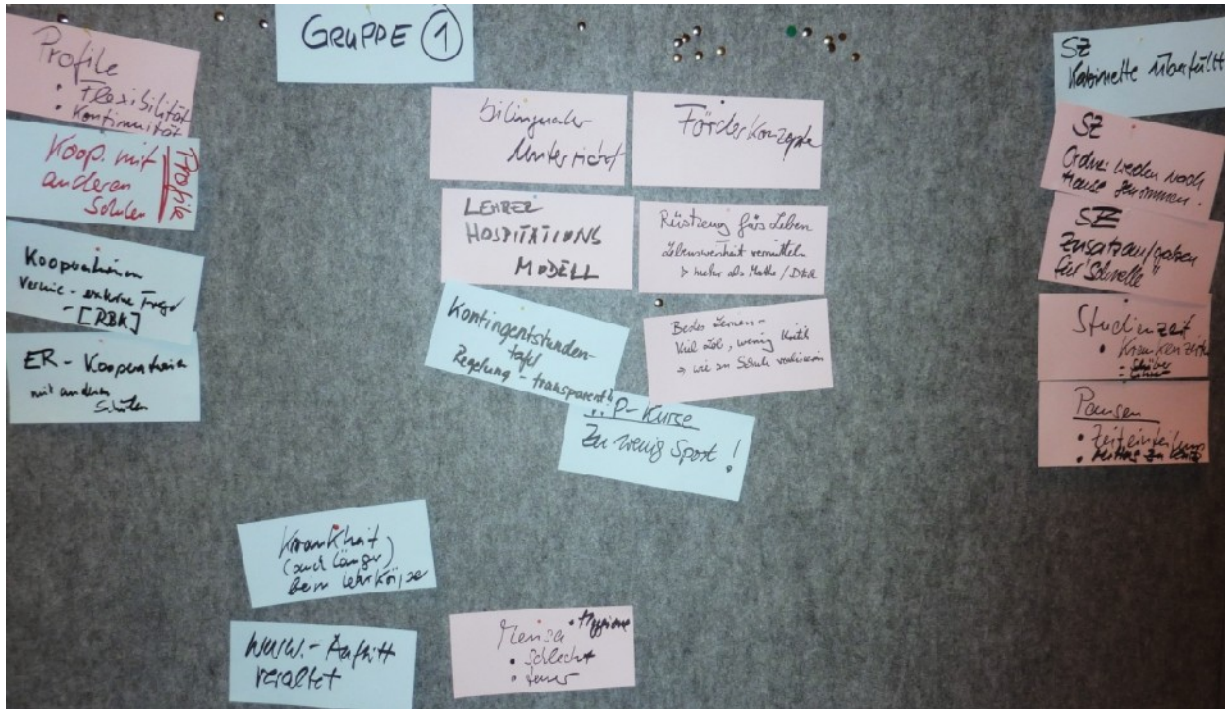 GRUPPE 1
Profile
• Flexibilität
• Kontinuität
Koop. mit
anderen
Schulen
Profile
Kooperationen
Vereine - externe Träger
- [RBK]
ER - Kooperation
mit anderen
Schulen
bilingualer
Unterricht
Förderkonzepte
LEHRER
HOSPITATIONS
MODELL
Rüstzeug fürs Leben
Lebensweisheit vermitteln
> mehr als Mathe /
Kontingentstunden-
tafel
Regelung - transparent
Lernen -
Viel Lob, wenig Kritik
→ wie an Schule
P-Kurse
Zu wenig Sport!
Krankheit
(auch länger)
beim Lehrkörper
www.-Auftritt
veraltet
Mensa • Hygiene
• schlecht
• teuer
SZ
Kabinette überfüllt
SZ
Ordner werden nach
Hause genommen.
SZ
Zusatzaufgaben
für "Schnelle"
Studienzeit
•
- Schüler
- Lehrer
Pausen
• Zeiteinteilung
• Mittag zu kurz